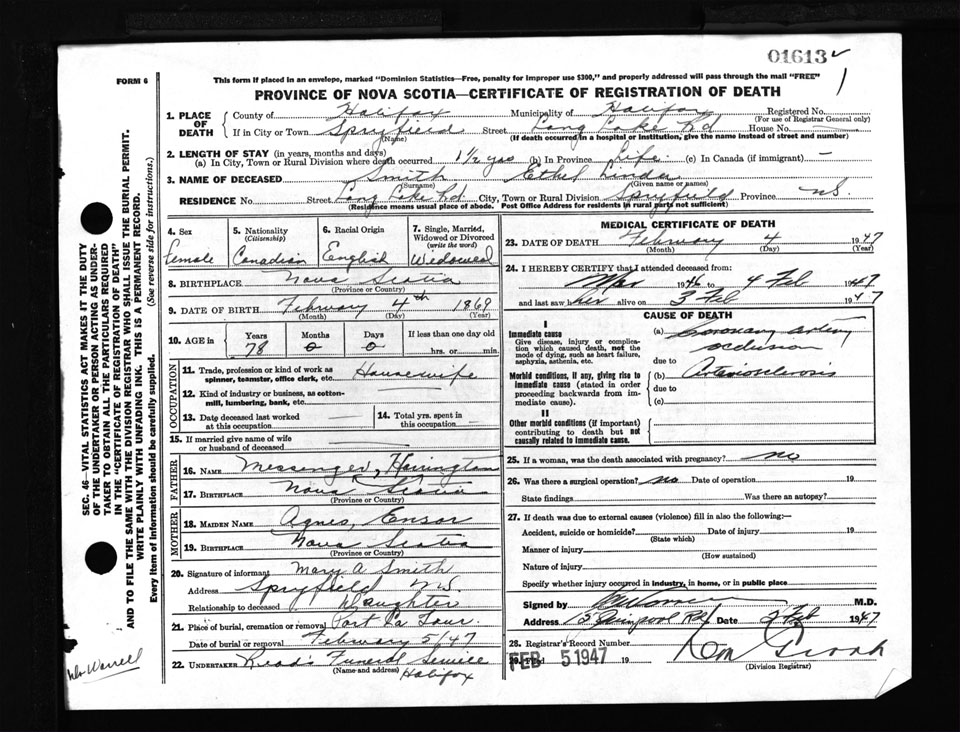 01613
FORM 6
This form if placed in an envelope, marked "Dominion Statistics—Free, penalty for improper use $300," and properly addressed will pass through the mail "FREE"
PROVINCE OF NOVA SCOTIA—CERTIFICATE OF REGISTRATION OF DEATH
1. PLACE OF DEATH County of Halifax Municipality of Halifax Registered No.
(For use of Registrar General only)
If in City or Town Spryfield Street Long Lake Rd House No. —
(Name) (If death occurred in a hospital or institution, give the name instead of street and number)
2. LENGTH OF STAY (in years, months and days)
(a) In City, Town or Rural Division where death occurred 1½ yrs (b) In Province Life (c) In Canada (if immigrant) —
3. NAME OF DECEASED Smith Ethel Linda
(Surname) (Given name or names)
RESIDENCE No. Street Long Lake Rd City, Town or Rural Division Spryfield Province N.S.
(Residence means usual place of abode. Post Office Address for residents in rural parts not sufficient)
4. Sex Female
5. Nationality (Citizenship) Canadian
6. Racial Origin English
7. Single, Married, Widowed or Divorced (write the word) Widowed
8. BIRTHPLACE Nova Scotia
(Province or Country)
9. DATE OF BIRTH February 4th 1869
(Month) (Day) (Year)
10. AGE in Years Months Days If less than one day old
78 0 0 hrs. or min.
OCCUPATION
11. Trade, profession or kind of work as spinner, teamster, office clerk, etc. Housewife
12. Kind of industry or business, as cotton-mill, lumbering, bank, etc.
13. Date deceased last worked at this occupation —
14. Total yrs. spent in this occupation —
15. If married give name of wife or husband of deceased —
FATHER
16. NAME Messenger, Harrington
17. BIRTHPLACE Nova Scotia
(Province or Country)
MOTHER
18. MAIDEN NAME Agnes, Ensor
19. BIRTHPLACE Nova Scotia
(Province or Country)
20. Signature of informant Mary A Smith
Address Spryfield N.S.
Relationship to deceased Daughter
21. Place of burial, cremation or removal Port La Tour.
Date of burial or removal February 5/47
22. UNDERTAKER Funeral Service
(Name and address) Halifax
MEDICAL CERTIFICATE OF DEATH
23. DATE OF DEATH February 4 1947
(Month) (Day) (Year)
24. I HEREBY CERTIFY that I attended deceased from:
Mar 1946 to 4 Feb 1947
and last saw her alive on 3 Feb 1947
CAUSE OF DEATH
I
Immediate cause
Give disease, injury or complication which caused death, not the mode of dying, such as heart failure, asphyxia, asthenia, etc.
(a) Coronary artery occlusion
due to
Morbid conditions, if any, giving rise to immediate cause (stated in order proceeding backwards from immediate cause).
(b) Arteriosclerosis
due to
(c)
II
Other morbid conditions (if important) contributing to death but not causally related to immediate cause.
25. If a woman, was the death associated with pregnancy? no
26. Was there a surgical operation? no Date of operation 19
State findings Was there an autopsy?
27. If death was due to external causes (violence) fill in also the following:—
Accident, suicide or homicide? Date of injury 19
(State which)
Manner of injury
(How sustained)
Nature of injury
Specify whether injury occurred in industry, in home, or in public place
Signed by M.D.
Address Quinpool Rd Date Feb 1947
28. Registrar's Record Number
29. Filed FEB 5 1947 19
(Division Registrar)
SEC. 46—VITAL STATISTICS ACT MAKES IT THE DUTY
OF THE UNDERTAKER OR PERSON ACTING AS UNDER-
TAKER TO OBTAIN ALL THE PARTICULARS REQUIRED
IN THE "CERTIFICATE OF REGISTRATION OF DEATH"
AND TO FILE THE SAME WITH THE DIVISION REGISTRAR WHO SHALL ISSUE THE BURIAL PERMIT.
WRITE PLAINLY WITH UNFADING INK. THIS IS A PERMANENT RECORD.
Every item of information should be carefully supplied. (See reverse side for instructions.)